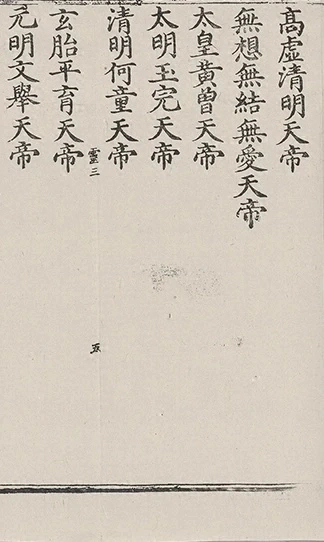 高虛清明天帝
無想無結無愛天帝
太皇黃曾天帝
太明玉完天帝
清明何童天帝
靈三
五
玄胎平育天帝
元明文舉天帝